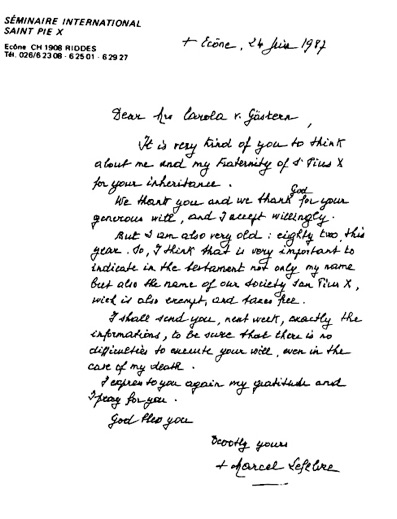 SÉMINAIRE INTERNATIONAL
SAINT PIE X
Ecône CH 1908 RIDDES
Tél. 026/6 23 08 - 6 25 01 - 6 29 27
+ Ecône, 24 Juin 1987
Dear Mrs Carola v. Gästern,
It is very kind of you to think
about me and my Fraternity of St Pius X
for your inheritance.
We thank you and we thank God for your
generous will, and I accept willingly.
But I am also very old : eighty two, this
year. So, I think that is very important to
indicate in the testament not only my name
but also the name of our society San Pius X,
wich is also exempt, and taxes free.
I shall send you, next week, exactly the
informations, to be sure that there is no
difficulties to execute your will, even in the
case of my death.
I express to you again my gratitude and
I pray for you.
God bless you
yours
+ Marcel Lefebvre